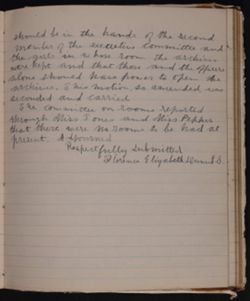 should be in the hands of the second
member of the executive committee and
the girls in whose room the archives
were kept and that these and the officers
alone should have power to open the
archives. The motion so amended, was
seconded and carried
The committee on rooms reported
through Miss Jones and Miss Pepper
that there were no rooms to be had at
present. Adjourned.
Respectfully submitted
Florence Elizabeth